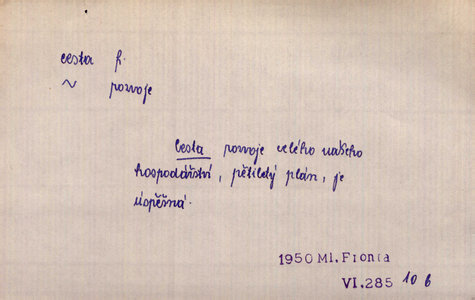 cesta f.
~ rozvoje
Cesta rozvoje celého našeho
hospodářství, pětiletý plán, je
úspěšná.
1950 Ml. Fronta
VI.285 10 6